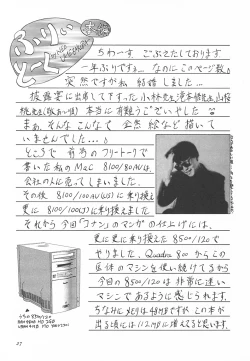 ふりーとーく
ちわーす ごぶさたしております
一年ぶりですネ... なのにこのページ数♪
突然ですが私 結婚しました...
披露宴に出席して下すった小林先生、滝本修先生、山田
先生 本当に有難うございやした
まあ、そんなこんなで 全然絵など描いて
いませんでした...♪
ところで 前号のフリートークで
書いた私のMac 8100/80AVは、
会社の人に売ってしまいました。
その後 8100/100AV(US)に乗り換え
更に 8100/100(J)に乗り換えました
それから今回「コナン」のマンガの仕上げには、
更に更に乗り換えた8500/120で
やりました。Quadra 800からこの
筐体のマシンを使い続けてるから
今日の8500/120は非常に速い
マシンであるように感じられます。
ちなみにメモリは48MBですが、この本が
出る頃には112MBに増えると思います。
27